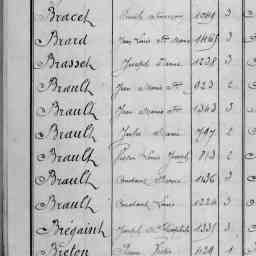 Bracet 1089 3
Brard Jean Louis Marie 1465 3
Brasset Joseph Pierre 1238 3
Brault Jean Marie 923 2
Brault Jean Marie 1343 3
Brault Jules Marie 797 2
Brault Pierre Louis Joseph 813 2
Brault Constant Pierre 1436 3
Brault Constant Louis 1224 3
Brégaint Joseph Théophile 1331 3
Breton Pierre 429 1